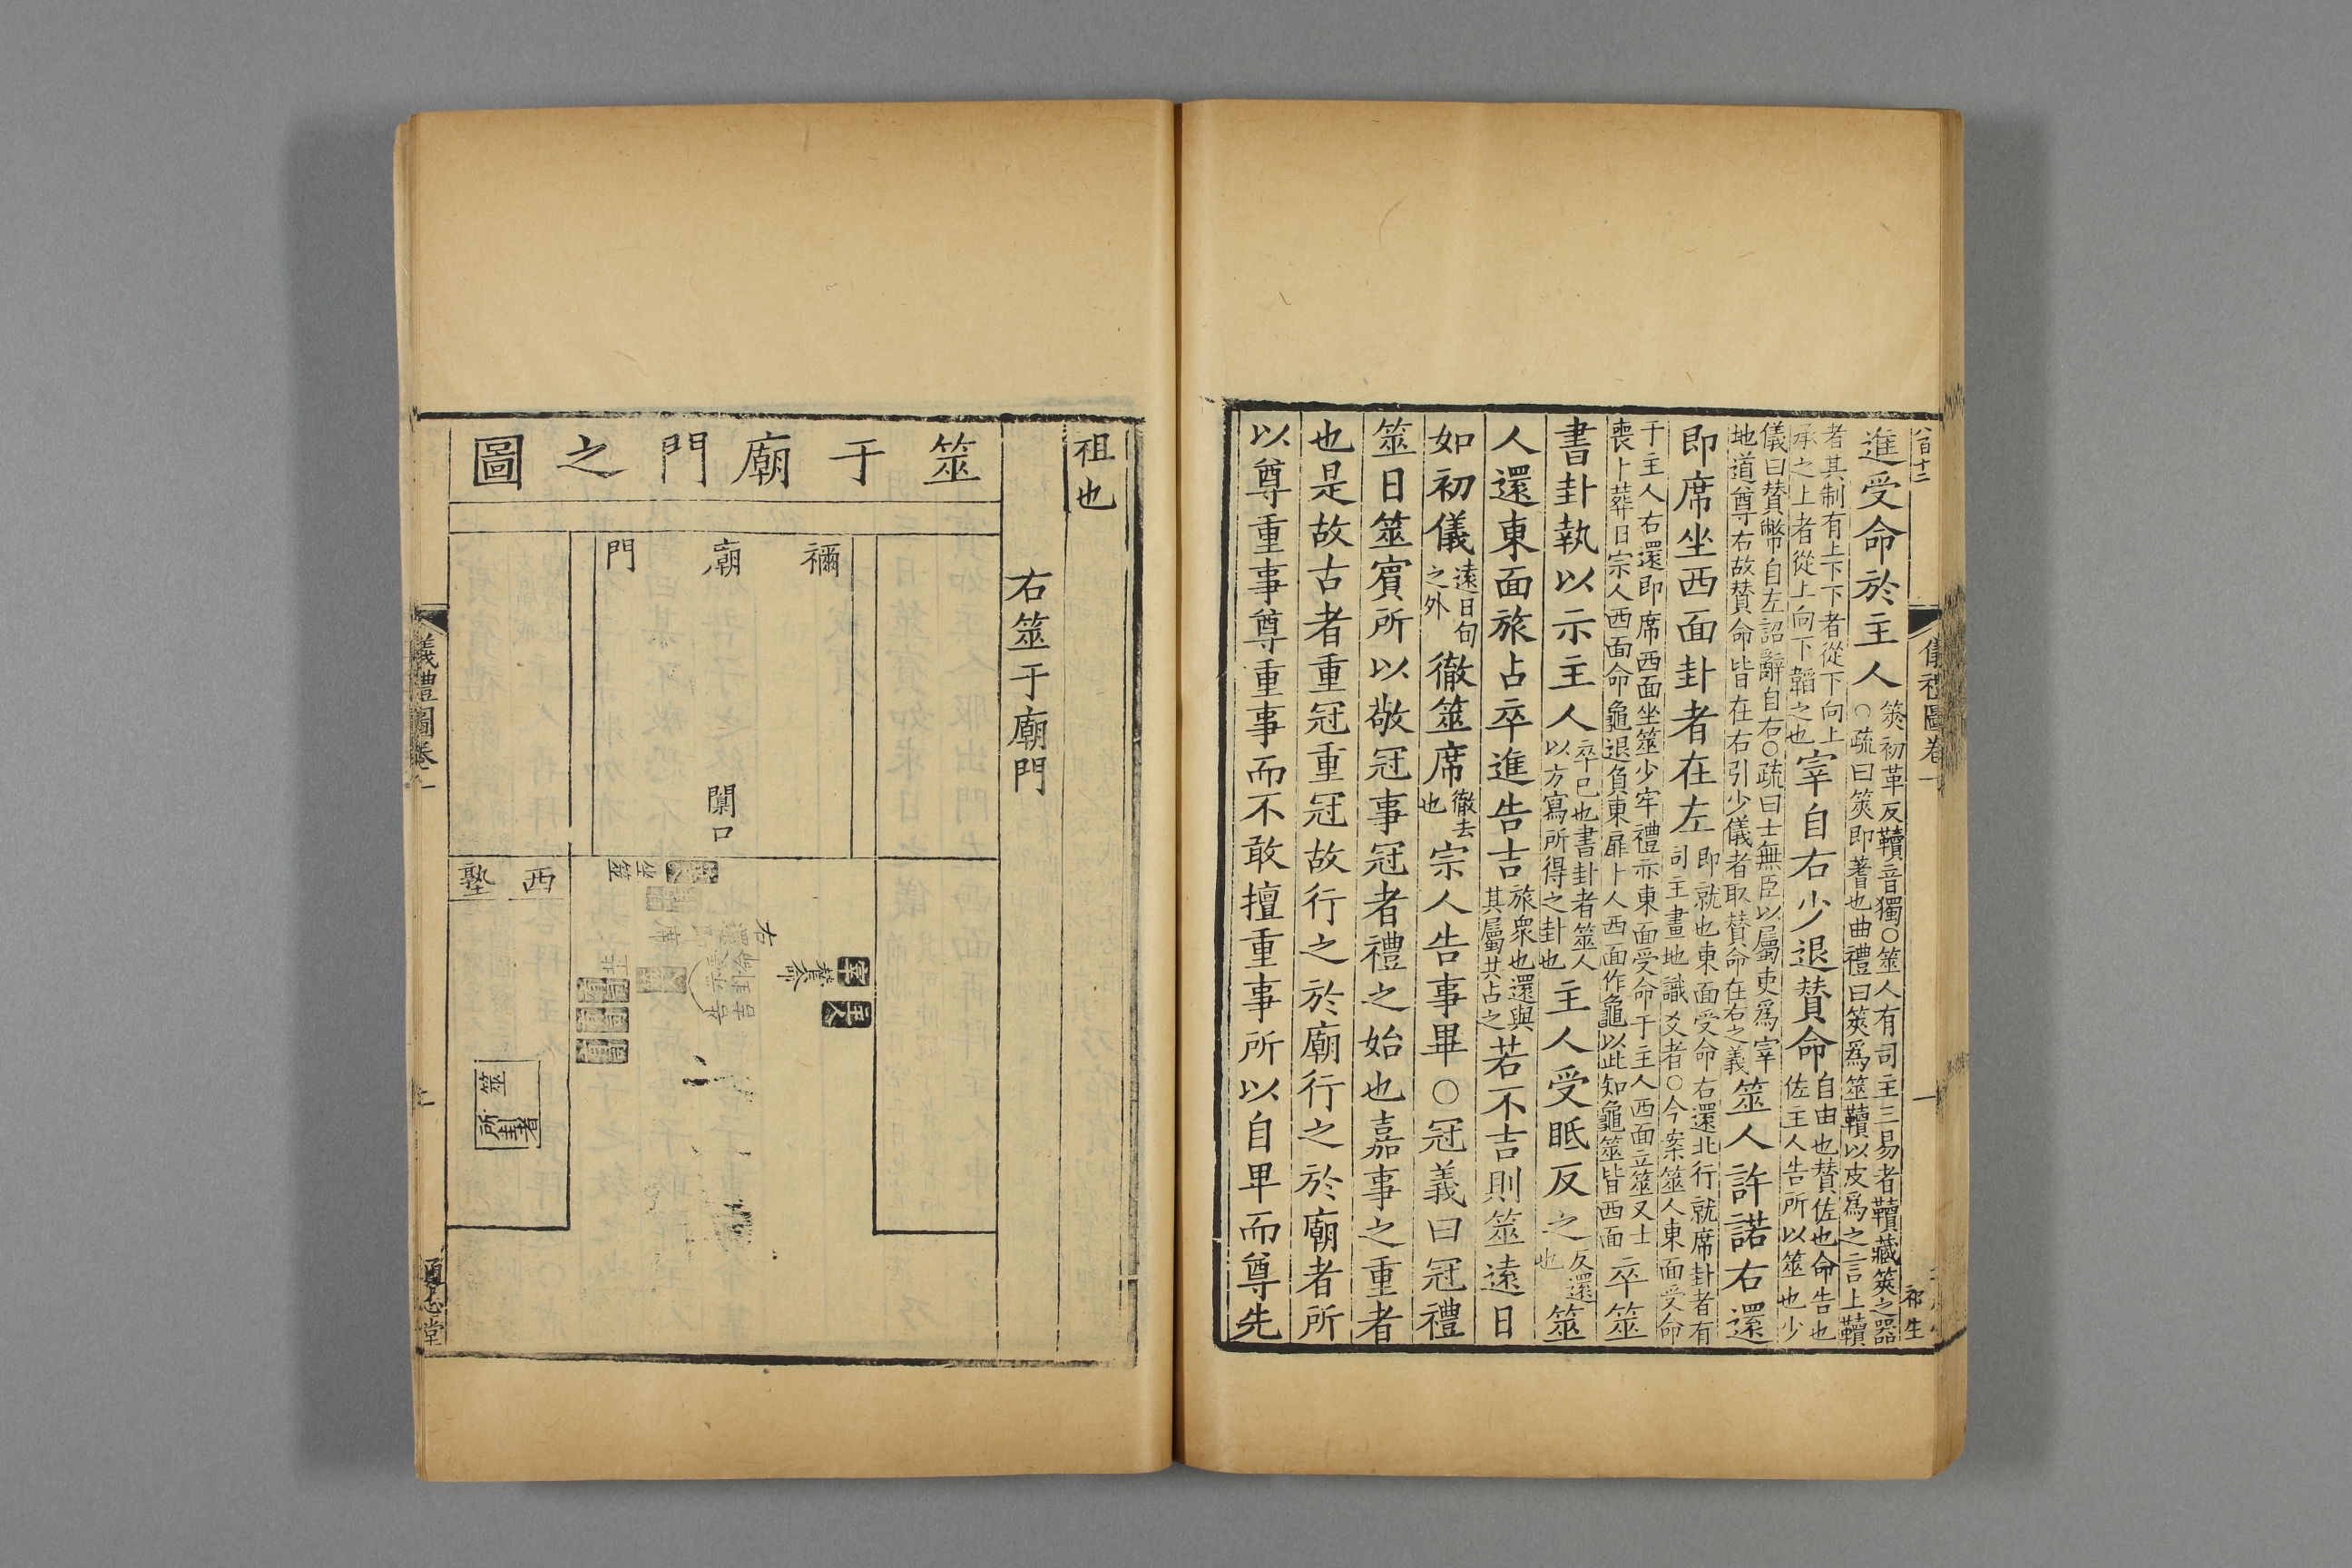 八百十二
儀禮圖卷一
一
祁生
進受命於主人筴初革反韇音獨○筮人有司主三易者韇藏筴之器○疏曰筴即蓍也曲禮曰筴爲筮韇以皮爲之言上韇
者其制有上下下者從下向上承之上者從上向下韜之也宰自右少退賛命自由也賛佐也命告也佐主人告所以筮也少
儀曰賛幣自左詔辭自右○疏曰士無臣以屬吏爲宰地道尊右故賛命皆在右引少儀者取賛命在右之義筮人許諾右還
即席坐西面卦者在左即就也東面受命右還北行就席卦者有司主畫地識爻者○今案筮人東面受命
于主人右還即席西面坐筮少牢禮亦東面受命于主人西面立筮又士喪卜葬日宗人西面命龜退負東扉卜人西面作龜以此知龜筮皆西面卒筮
書卦執以示主人卒已也書卦者筮人以方寫所得之卦也主人受眡反之反還也筮
人還東面旅占卒進告吉旅衆也還與其屬共占之若不吉則筮遠日
如初儀遠日旬之外徹筮席徹去也宗人告事畢○冠義曰冠禮
筮日筮賓所以敬冠事冠者禮之始也嘉事之重者
也是故古者重冠重冠故行之於廟行之於廟者所
以尊重事尊重事而不敢擅重事所以自卑而尊先
祖也
右筮于廟門
筮于廟門之圖
禰廟門
闑口
西塾
宰
賛命
主人
右還即席
坐筮
筮
所
儀禮圖卷一
通志堂